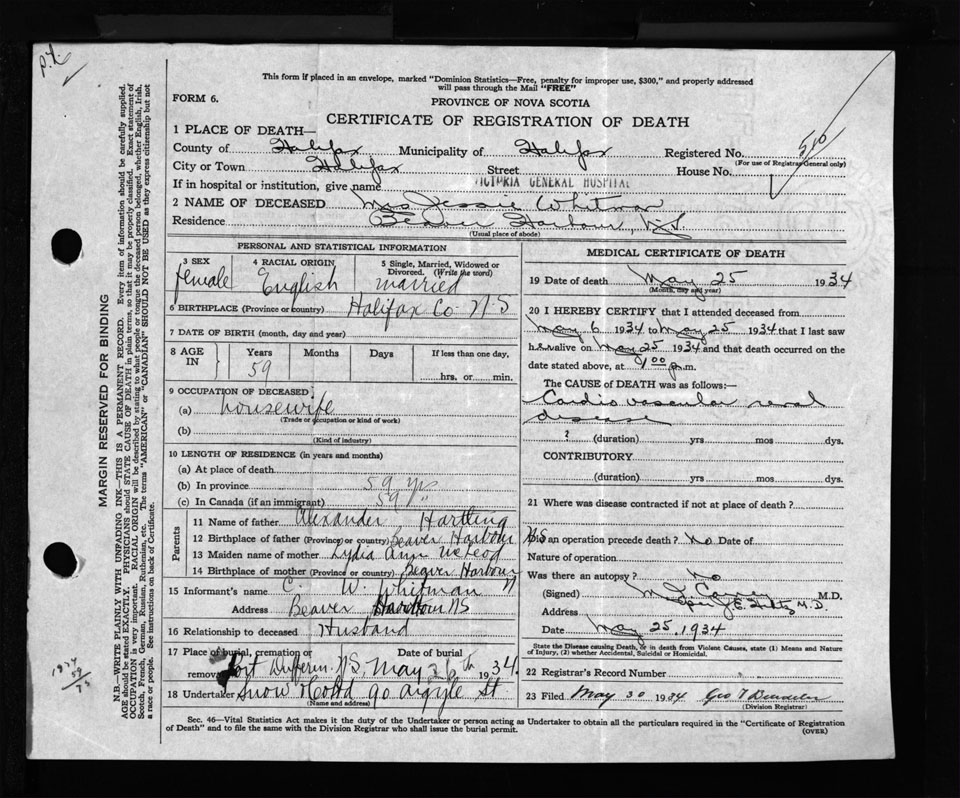 p.t.
This form if placed in an envelope, marked "Dominion Statistics—Free, penalty for improper use, $300," and properly addressed
will pass through the Mail "FREE"
FORM 6.
PROVINCE OF NOVA SCOTIA
CERTIFICATE OF REGISTRATION OF DEATH
1 PLACE OF DEATH—
County of Halifax Municipality of Halifax Registered No. 510
(For use of Registrar General only)
City or Town Halifax Street House No.
If in hospital or institution, give name VICTORIA GENERAL HOSPITAL
2 NAME OF DECEASED Mrs Jessie Whitman
Residence Beaver Harbour, N.S.
(Usual place of abode)
PERSONAL AND STATISTICAL INFORMATION
3 SEX female
4 RACIAL ORIGIN English
5 Single, Married, Widowed or
Divorced. (Write the word)
married
6 BIRTHPLACE (Province or country) Halifax Co N-S
7 DATE OF BIRTH (month, day and year)
8 AGE IN
Years Months Days If less than one day,
59
hrs. or min.
9 OCCUPATION OF DECEASED
(a) housewife
(Trade or occupation or kind of work)
(b)
(Kind of industry)
10 LENGTH OF RESIDENCE (in years and months)
(a) At place of death
(b) In province 59 yrs
(c) In Canada (if an immigrant) 59 "
Parents
11 Name of father Alexander Hartling
12 Birthplace of father (Province or country) Beaver Harbour NS
13 Maiden name of mother Lydia Ann McLeod
14 Birthplace of mother (Province or country) Beaver Harbour
15 Informant's name C. W. Whitman
Address Beaver Harbour NS
16 Relationship to deceased Husband
17 Place of burial, cremation or Date of burial
removal Port Dufferin, NS, May 26th 1934.
18 Undertaker Snow & Co Ltd 90 Argyle St.
(Name and address)
MEDICAL CERTIFICATE OF DEATH
19 Date of death May 25 1934
(Month, day and year)
20 I HEREBY CERTIFY that I attended deceased from
May 6 1934 to May 25 1934 that I last saw
her alive on May 25 1934 and that death occurred on the
date stated above, at 1 00 p.m.
The CAUSE of DEATH was as follows:—
Cardio vascular renal
disease
? (duration) yrs mos dys.
CONTRIBUTORY
(duration) yrs mos dys.
21 Where was disease contracted if not at place of death?
Did an operation precede death? No Date of
Nature of operation
Was there an autopsy? No
(Signed) M.D.
Address M.D.
Date May 25. 1934
State the Disease causing Death, or in death from Violent Causes, state (1) Means and
Nature of Injury, (2) whether Accidental, Suicidal or Homicidal.
22 Registrar's Record Number
23 Filed May 30 1934 Geo
(Division Registrar)
Sec. 46—Vital Statistics Act makes it the duty of the Undertaker or person acting as Undertaker to obtain all the particulars required in the "Certificate of Registration
of Death" and to file the same with the Division Registrar who shall issue the burial permit.
(OVER)
MARGIN RESERVED FOR BINDING
N.B.—WRITE PLAINLY WITH UNFADING INK—THIS IS A PERMANENT RECORD. Every item of information should be carefully supplied.
AGE should be stated EXACTLY. PHYSICIANS should STATE CAUSE OF DEATH in plain terms, so that it may be properly classified. Exact statement of
OCCUPATION is very important. RACIAL ORIGIN will be described by stating to what people or tongue the deceased person belonged, whether English, Irish,
Scotch, French, German, Russian, Ruthenian, etc. The terms "AMERICAN" or "CANADIAN" SHOULD NOT BE USED as they express citizenship but not
a race or people. See instructions on back of Certificate.
1934
59
75